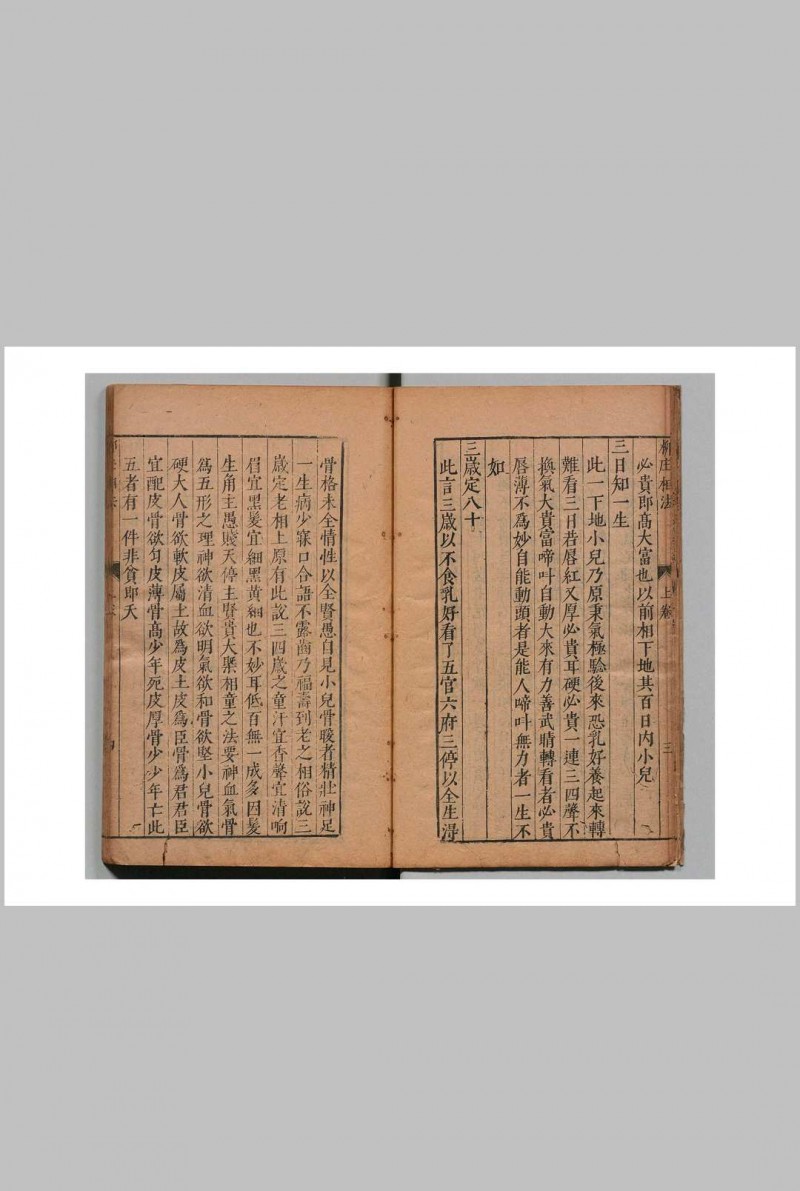 柳庄相法
上卷
三
必貴郎髙大富也以前相下地其百日内小兒
三日知一生
此一下地小兒乃原秉氣極騐後來恐乳好養起來轉
難看三日若唇紅又厚必貴耳硬必貴一連三四聲不
換氣大貴富啼叫自動大來有力善武睛轉看者必貴
唇薄不爲妙自能動頭者是能人啼叫無力者一生不
如
三歲定八十
此言三歲以不食乳好看了五官六府三停以全生淂
骨格未全情性以全賢愚自見小兒骨暖者精壯神足
一生病少寐口合語不露齒乃福壽到老之相俗說三
歲定老相上原有此說三四歲之童汗宜香聲宜清响
眉宜黑髮宜細黑黄細也不妙耳低百無一成多因髮
生角主愚賤天停主賢貴大槩相童之法要神血氣骨
爲五形之理神欲清血欲明氣欲和骨欲堅小兒骨欲
硬大人骨欲軟皮屬土故爲皮土皮爲臣骨爲君君臣
宜配皮骨欲匀皮薄骨髙少年死皮厚骨少少年亡此
五者有一件非貧即夭